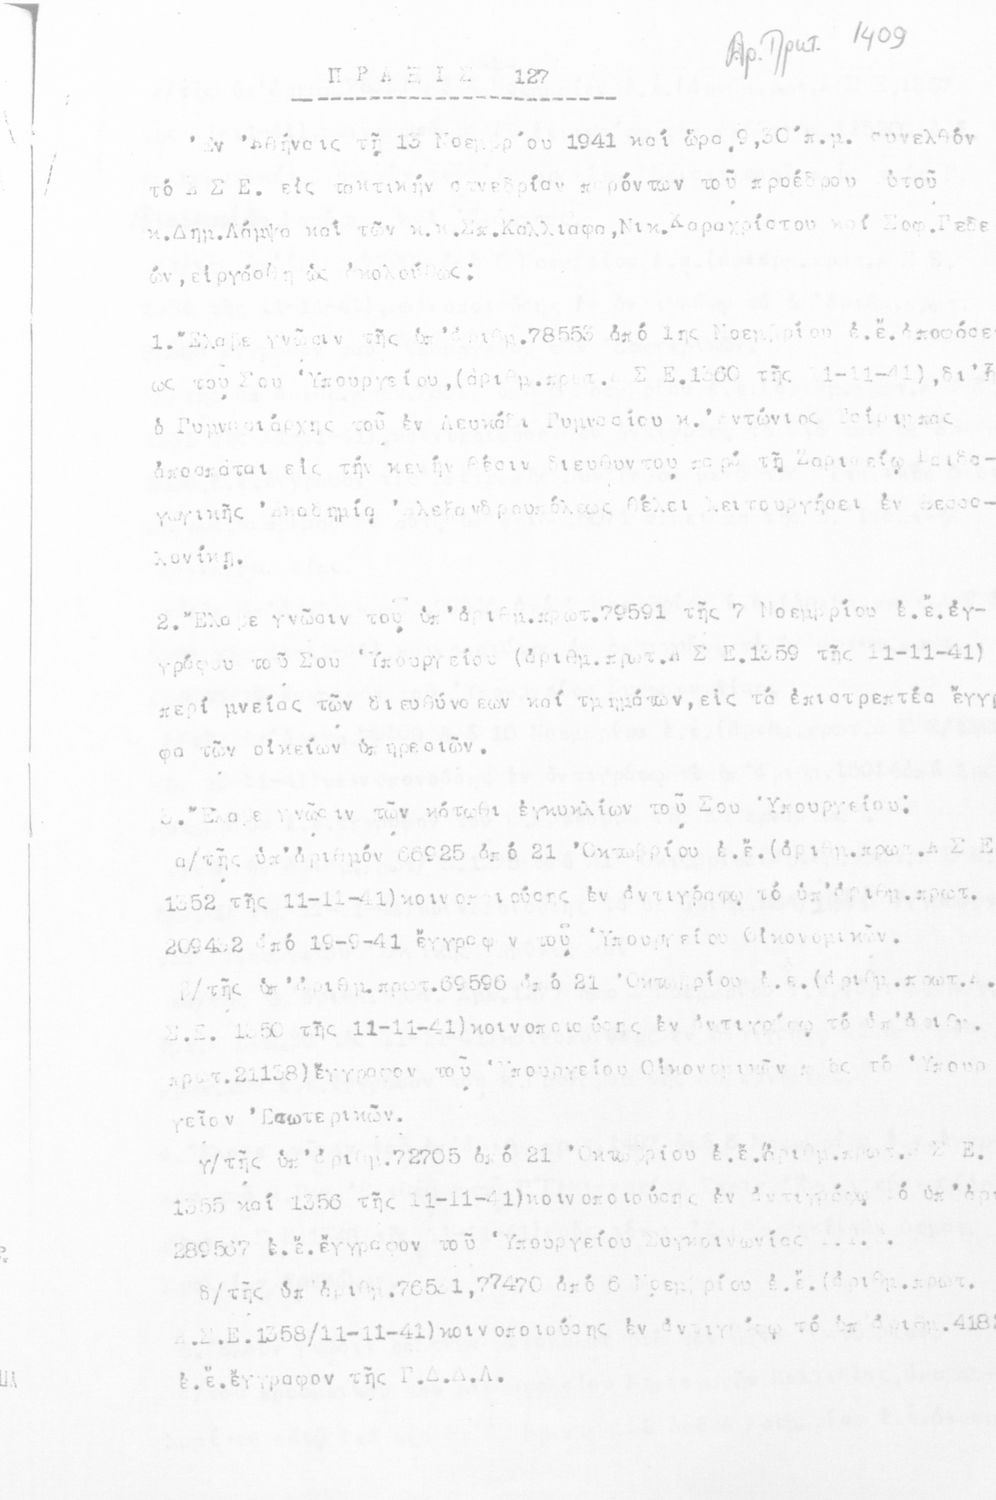 Αρ. Πρωτ. 1409
Π Ρ Α Ξ Ι Σ 127
Ἐν Ἀθήναις τῇ 13 Νοεμβρίου 1941 καί ὥρα 9,30 π.μ. συνελθόν
τό Α Σ Ε. εἰς τακτικήν συνεδρίαν παρόντων τοῦ προέδρου αὐτοῦ
κ.Δημ.Λάμψα καί τῶν κ.κ.Σπ.Καλλιάφα,Νικ.Καραχρίστου καί Σοφ.Γεδε
ών,εἰργάσθη ὡς ἀκολούθως:
1.Ἔλαβε γνῶσιν τῆς ὑπ'ἀριθμ.78553 ἀπό 1ης Νοεμβρίου ἐ.ἔ.ἀποφάσε
ως τοῦ Σου Ὑπουργείου,(ἀριθμ.πρωτ.Α Σ Ε.1360 τῆς 11-11-41),δι'ἧς
ὁ Γυμνασιάρχης τοῦ ἐν Λευκάδι Γυμνασίου κ.Ἀντώνιος Τσίριμπας
ἀποσπᾶται εἰς τήν κενήν θέσιν διευθυντοῦ παρά τῇ Ζαριφείῳ Παιδα-
γωγικῆς Ἀκαδημίᾳ Ἀλεξανδρουπόλεως θέλει λειτουργήσει ἐν Θεσσα-
λονίκῃ.
2.Ἔλαβε γνῶσιν τοῦ ὑπ'ἀριθμ.πρωτ.79591 τῆς 7 Νοεμβρίου ἐ.ἔ.ἐγ-
γράφου τοῦ Σου Ὑπουργείου (ἀριθμ.πρωτ.Α Σ Ε.1359 τῆς 11-11-41)
περί μνείας τῶν διευθύνσεων καί τμημάτων,εἰς τά ἐπιστρεπτέα ἔγγρ
φα τῶν οἰκείων ὑπηρεσιῶν.
3.Ἔλαβε γνῶσιν τῶν κάτωθι ἐγκυκλίων τοῦ Σου Ὑπουργείου:
α/τῆς ὑπ'ἀριθμόν 66925 ἀπό 21 Ὀκτωβρίου ἐ.ἔ.(ἀριθμ.πρωτ.Α Σ Ε
1352 τῆς 11-11-41)κοινοποιούσης ἐν ἀντιγράφῳ τό ὑπ'ἀριθμ.πρωτ.
209432 ἀπό 19-9-41 ἔγγραφον τοῦ Ὑπουργείου Οἰκονομικῶν.
β/τῆς ὑπ'ἀριθμ.πρωτ.69596 ἀπό 21 Ὀκτωβρίου ἐ.ἔ.(ἀριθμ.πρωτ.Α.
Σ.Ε. 1350 τῆς 11-11-41)κοινοποιούσης ἐν ἀντιγράφῳ τό ὑπ'ἀριθμ.
πρωτ.21138)ἔγγραφον τοῦ Ὑπουργείου Οἰκονομικῶν πρός τό Ὑπουρ
γεῖον Ἐσωτερικῶν.
γ/τῆς ὑπ'ἀριθμ.72705 ἀπό 21 Ὀκτωβρίου ἐ.ἔ.ἀριθμ.πρωτ.Α Σ Ε.
1355 καί 1356 τῆς 11-11-41)κοινοποιούσης ἐν ἀντιγράφῳ τό ὑπ'ἀρι
289567 ἐ.ἔ.ἔγγραφον τοῦ Ὑπουργείου Συγκοινωνίας
δ/τῆς ὑπ'ἀριθμ. 77470 ἀπό 6 Νοεμβρίου ἐ.ἔ.(ἀριθμ.πρωτ.
Α.Σ.Ε.1358/11-11-41)κοινοποιούσης ἐν ἀντιγράφῳ τό ὑπ'ἀριθμ.4182
ἐ.ἔ.ἔγγραφον τῆς Γ.Δ.Δ.Λ.